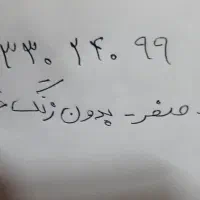 ۳۳۰ ۲۴۰ ۹۹
- صفر - بدون زنگ